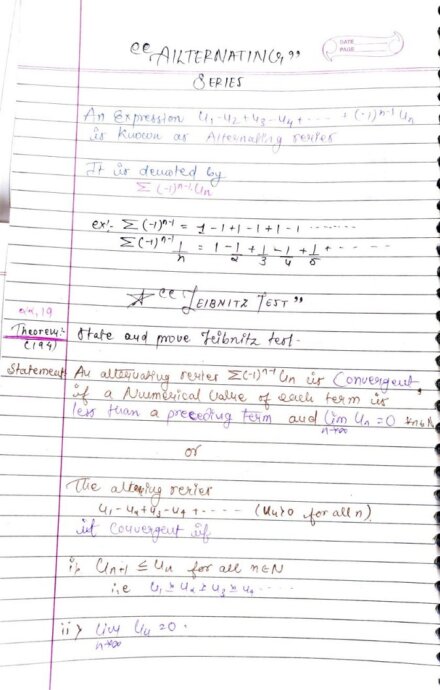 "ALTERNATING"
DATE
PAGE
SERIES
An Expression u₁-u₂+u₃-u₄+ ---- +(-1)ⁿ⁻¹ uₙ
is known as Alternating series
It is denoted by
Σ (-1)ⁿ⁻¹ uₙ
ex:- Σ(-1)ⁿ⁻¹ = 1-1+1-1+1-1 ------
Σ(-1)ⁿ⁻¹ 1/n = 1 - 1/2 + 1/3 - 1/4 + 1/5 + - - - -
"LEIBNITZ TEST"
Theorem:- State and prove Leibnitz test.
Statement An alternating series Σ(-1)ⁿ⁻¹ uₙ is Convergent
if a Numerical value of each term is
less than a preceding term and lim n→∞ uₙ = 0 ∀n∈N
or
The altering series
u₁-u₂+u₃-u₄+ ----- (uₙ>0 for all n)
is convergent if
i> uₙ₊₁ ≤ uₙ for all n∈N
i.e u₁ ≥ u₂ ≥ u₃ ≥ u₄ ----
ii> lim n→∞ uₙ = 0.